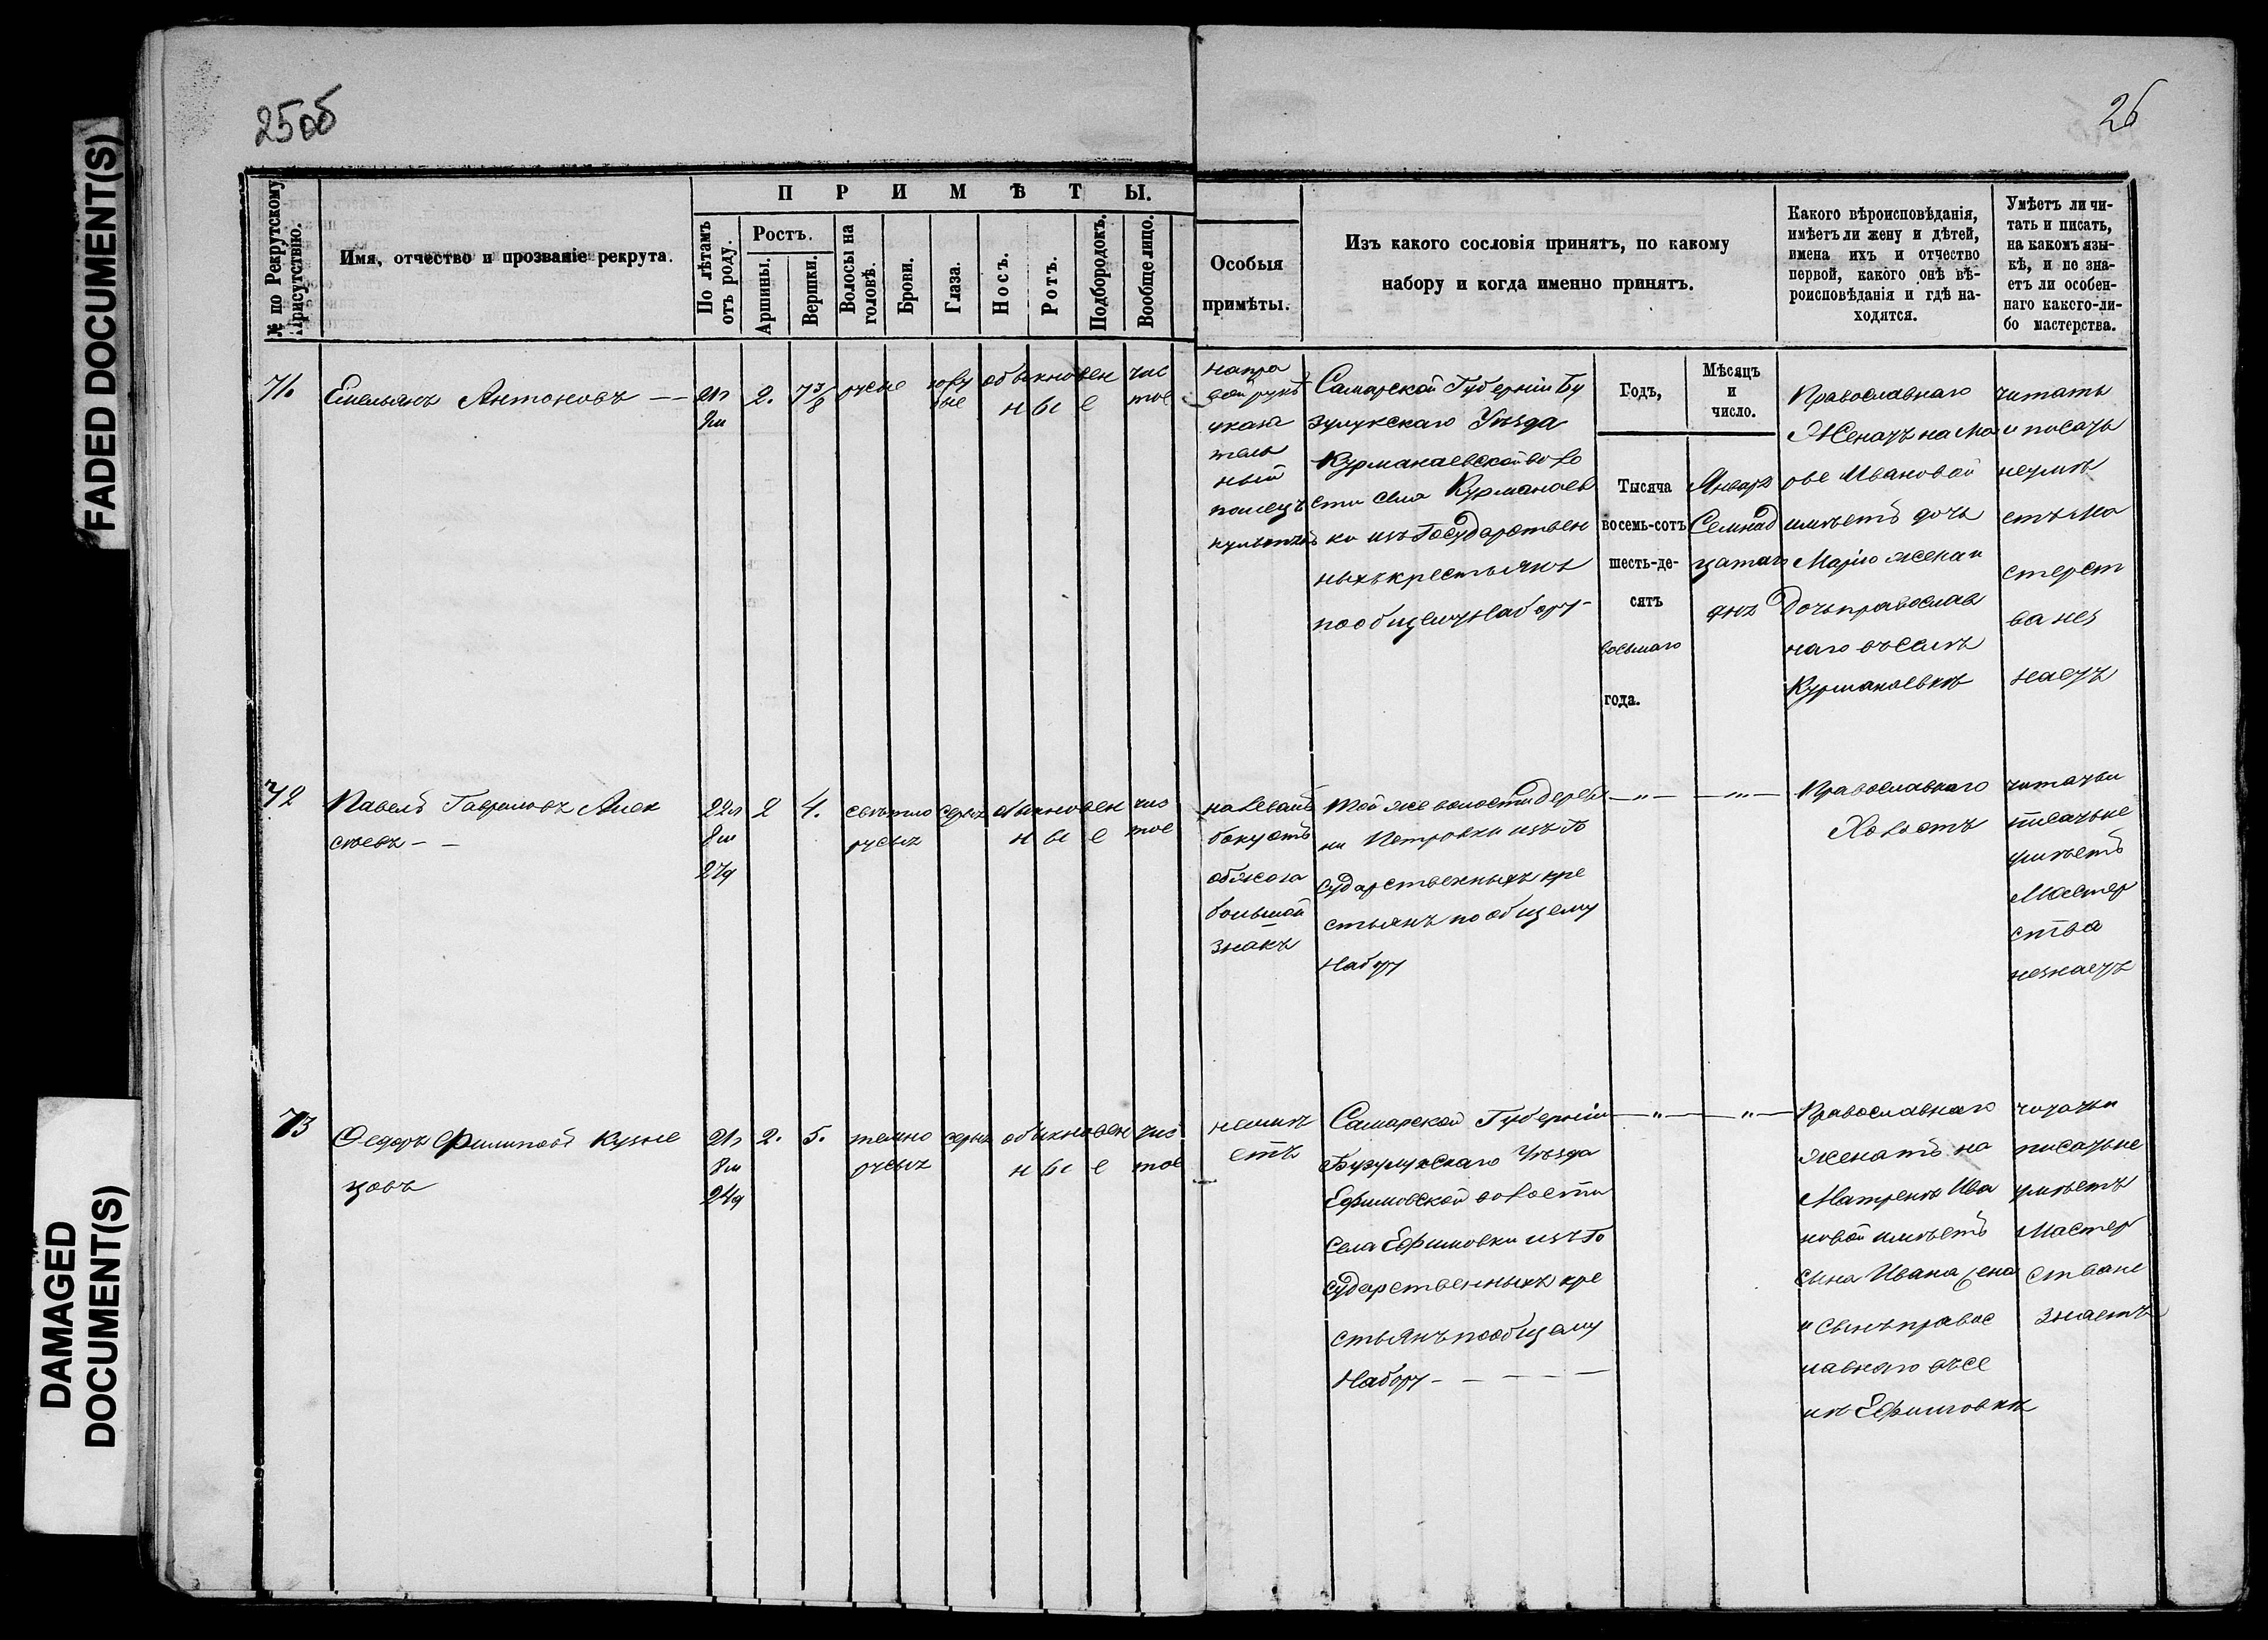 FADED DOCUMENT(S)
DAMAGED
DOCUMENT(S)
25об
26
№ по Рекрутскому
Присутствію.
Имя, отчество и прозваніе рекрута.
ПРИМѢТЫ.
По лѣтамъ
отъ роду.
Ростъ.
Аршины.
Вершки.
Волосы на
головѣ.
Брови.
Глаза.
Носъ.
Ротъ.
Подбородокъ.
Вообще лицо.
Особыя
примѣты.
Изъ какого сословія принятъ, по какому
набору и когда именно принятъ.
Какого вѣроисповѣданія,
имѣетъ ли жену и дѣтей,
имена ихъ и отчество
первой, какого онѣ вѣ-
роисповѣданія и гдѣ на-
ходятся.
Умѣетъ ли чи-
тать и писать,
на какомъ язы-
кѣ, и не зна-
етъ ли особен-
наго какого-ли-
бо мастерства.
71.
Емельянъ Антоновъ
2. 7 3/8 русые
обыкновен
ны е
чис
тое
напра
вой рукѣ
указа
тель
ный
палецъ
Самарской Губерніи Бу
зулукскаго Уѣзда
Курманаевской воло
сти села Курманаев
ки изъ Государствен
ныхъ крестьянъ
по общему набору -
Годъ,
Мѣсяцъ
и
число.
Тысяча
восемь-сотъ
шесть-де-
сятъ
восьмаго
года.
Январь
Семнад
цатаго
дня
Православнаго
Женатъ на Ма
Ивановой
имѣетъ дочь
Марію жена и
дочь православ
наго въ селѣ
Курманаевкѣ
читать
и писать
неумѣ
етъ Ма
стерст
ва нез
наетъ
72
Павелъ Гавриловъ Алек
сѣевъ - -
22л
8м
27д
2 4.
свѣтло
русыя
серыя
обыкновен
ны е
чис
тое
на левомъ
боку отъ
обжога
большой
знакъ
Той же волости дерев
ни Петровки изъ Го
сударственныхъ кре
стьянъ по общему
набору
— „ — — „ —
Православнаго
Холостъ
читать и
писать не
умѣетъ
Мастер
ства
незнаетъ
73
Федоръ Филиповъ Кузне
цовъ
21л
8м
24д
2. 5.
темно
русыя
серыя
обыкновен
ны е
чис
тое
неимѣ
етъ
Самарской Губерніи
Бузулукскаго Уѣзда
Ефимовской волости
Села Ефимовки изъ Го
сударственныхъ кре
стьянъ по общему
Набору - - - - -
— „ — — „ —
Православнаго
женатъ на
Матренѣ Ива
новой имѣетъ
сына Ивана жена
и сынъ правос
лавнаго въ се
лѣ Ефимовкѣ
читать и
писать не
умѣетъ
Мастер
ства не
знаетъ